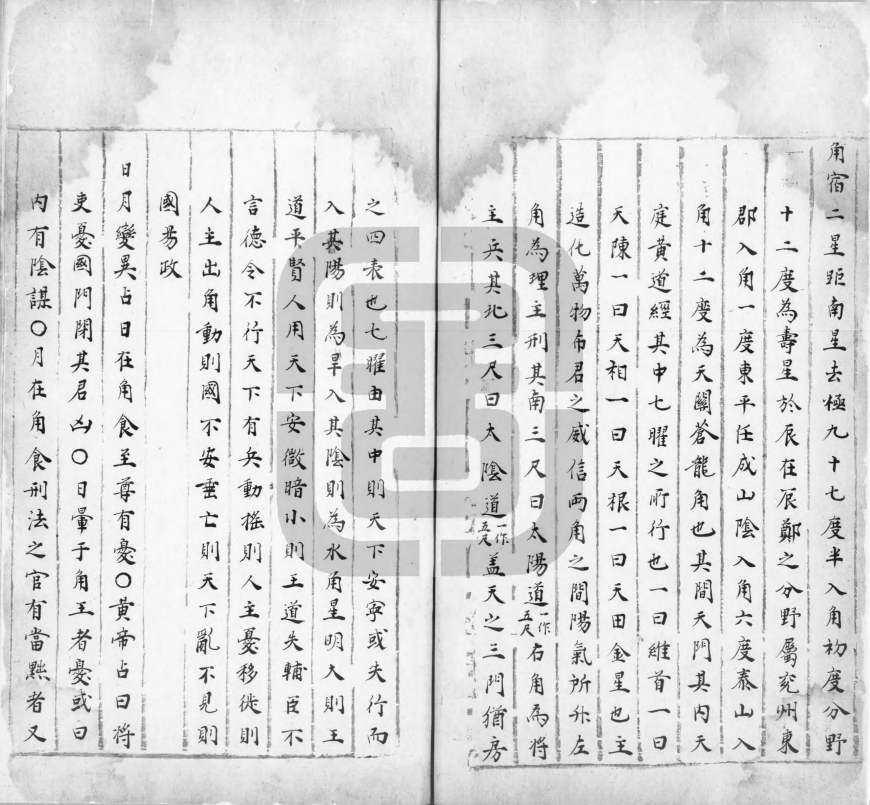 角宿二星距南星去極九十七度半入角初度分野
十二度為壽星於辰在辰鄭之分野屬兖州東
郡入角一度東平任成山陰入角六度泰山入
角十二度為天關蒼龍角也其間天門其内天
庭黃道經其中七曜之所行也一曰維首一曰
天陳一曰天相一曰天根一曰天田金星也主
造化萬物布君之威信両角之間陽氣所升左
角為理主刑其南三尺曰太陽道一作五尺右角為将
主兵其北三尺曰太陰道一作五尺盖天之三門猶房
之四表也七曜由其中則天下安寧或失行而
入其陽則為旱入其陰則為水角星明大則王
道平賢人用天下安微暗小則王道失輔臣不
言德令不行天下有兵動摇則人主憂移徙則
人主出角動則國不安亜亡則天下亂不見則
國易政
日月變異占日在角食至尊有憂〇黄帝占曰将
吏憂國門閉其君凶〇日暈于角王者憂或曰
内有陰謀〇月在角食刑法之官有當黜者又